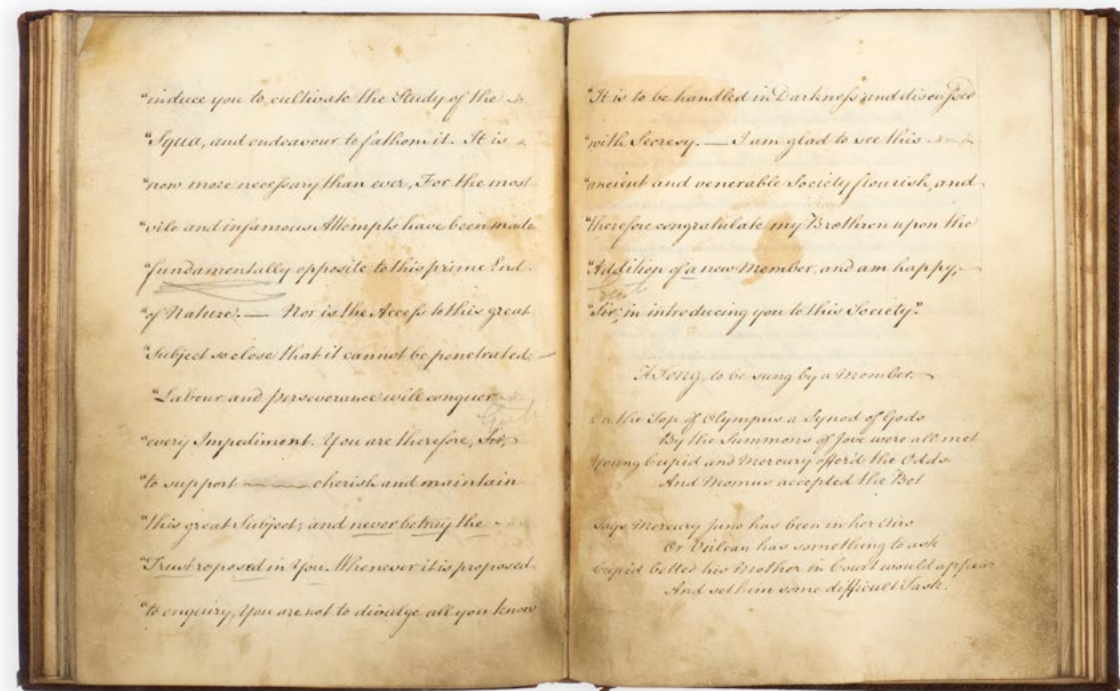 "induce you to cultivate the Study of the
"Squa, and endeavour to fathom it. It is
"now more necessary than ever, For the most
"vile and infamous Attempts have been made
"fundamentally opposite to this prime End
"of Nature. — Nor is the Access to this great
"Subject so close that it cannot be penetrated.
"Labour and perseverance will conquer
"every Impediment. You are therefore, Sir,
"to support cherish and maintain
"this great Subject; and never betray the
"Trust reposed in You. Whenever it is proposed
"to enquiry, You are not to divulge all you know
"It is to be handled in Darkness and discussed
"with Secresy. — I am glad to see this
"ancient and venerable Society flourish, and
"therefore congratulate my Brethren upon the
"Addition of a new Member, and am happy,
"Sir, in introducing you to this Society."
A Song, to be sung by a Member.
On the Top of Olympus a Synod of Gods
By the Summons of Jove were all met
Young Cupid and Mercury offer'd the Odds
And Momus accepted the Bet
Says Mercury Juno has been in her Airs
Or Vulcan has something to ask
Cupid betted his Mother in Court would appear
And set him some difficult Task.